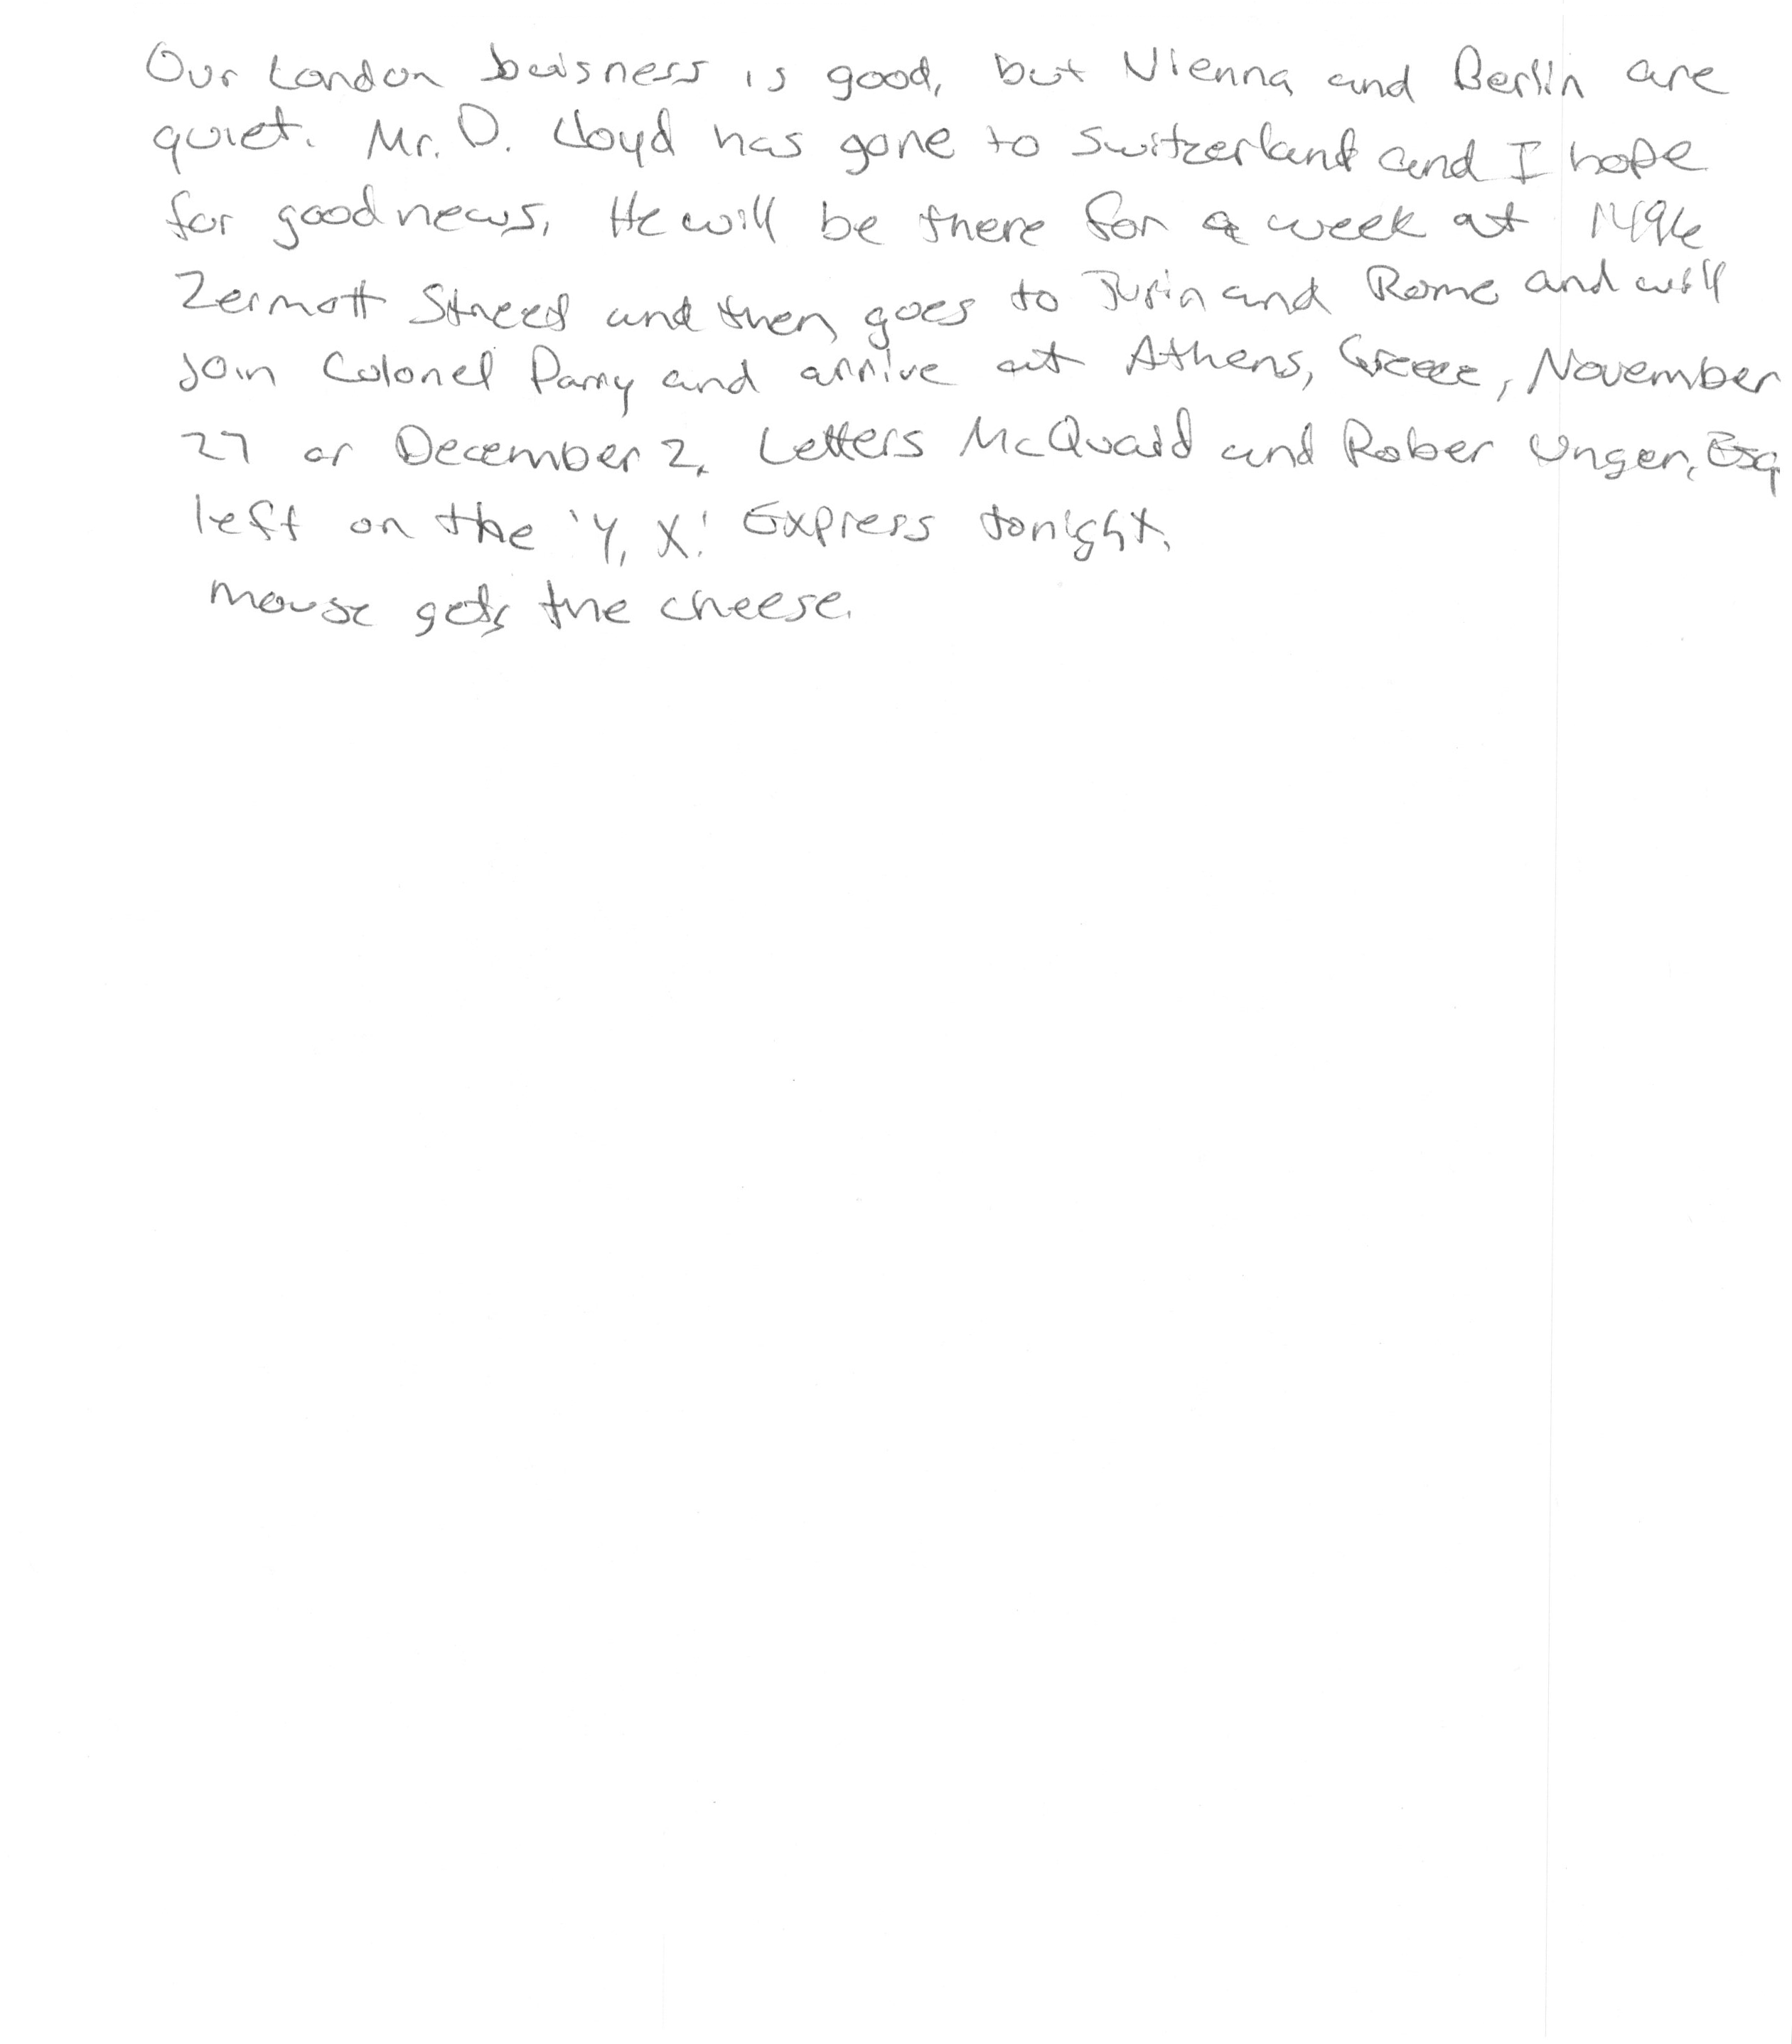 Our London buisness is good, but Vienna and Berlin are
quiet. Mr. D. Lloyd has gone to Switzerland and I hope
for good news. He will be there for a week at 1496
Zermott Street and then goes to Turin and Rome and will
join Colonel Parry and arrive at Athens, Greece, November
27 or December 2. Letters McQuaid and Rober Unger, Esq
left on the 'Y. X.' Express tonight.
mouse gets the cheese.